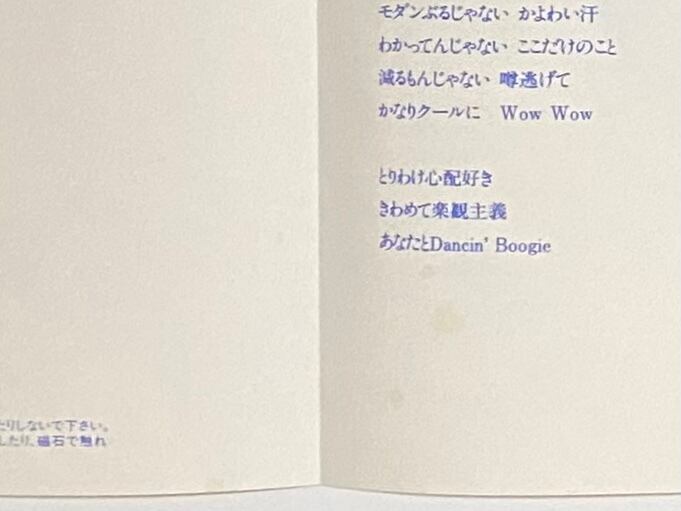 モダンぶるじゃない かよわい汗
わかってんじゃない ここだけのこと
減るもんじゃない 噂逃げて
かなりクールに Wow Wow
とりわけ心配好き
きわめて楽観主義
あなたとDancin' Boogie
たりしないで下さい。
したり、磁石で触れ